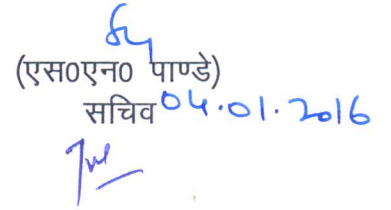 (एस०एन० पाण्डे)
सचिव 04.01.2016